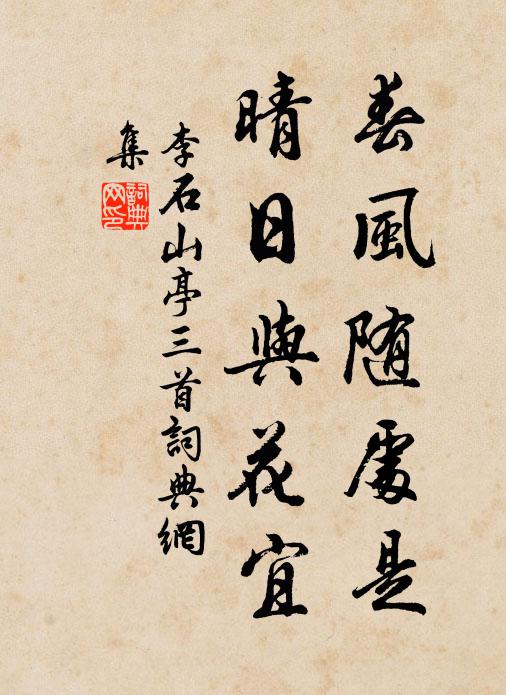 春風随處是
晴日與花宜
李石山亭三首詞典網
集
詞典網印